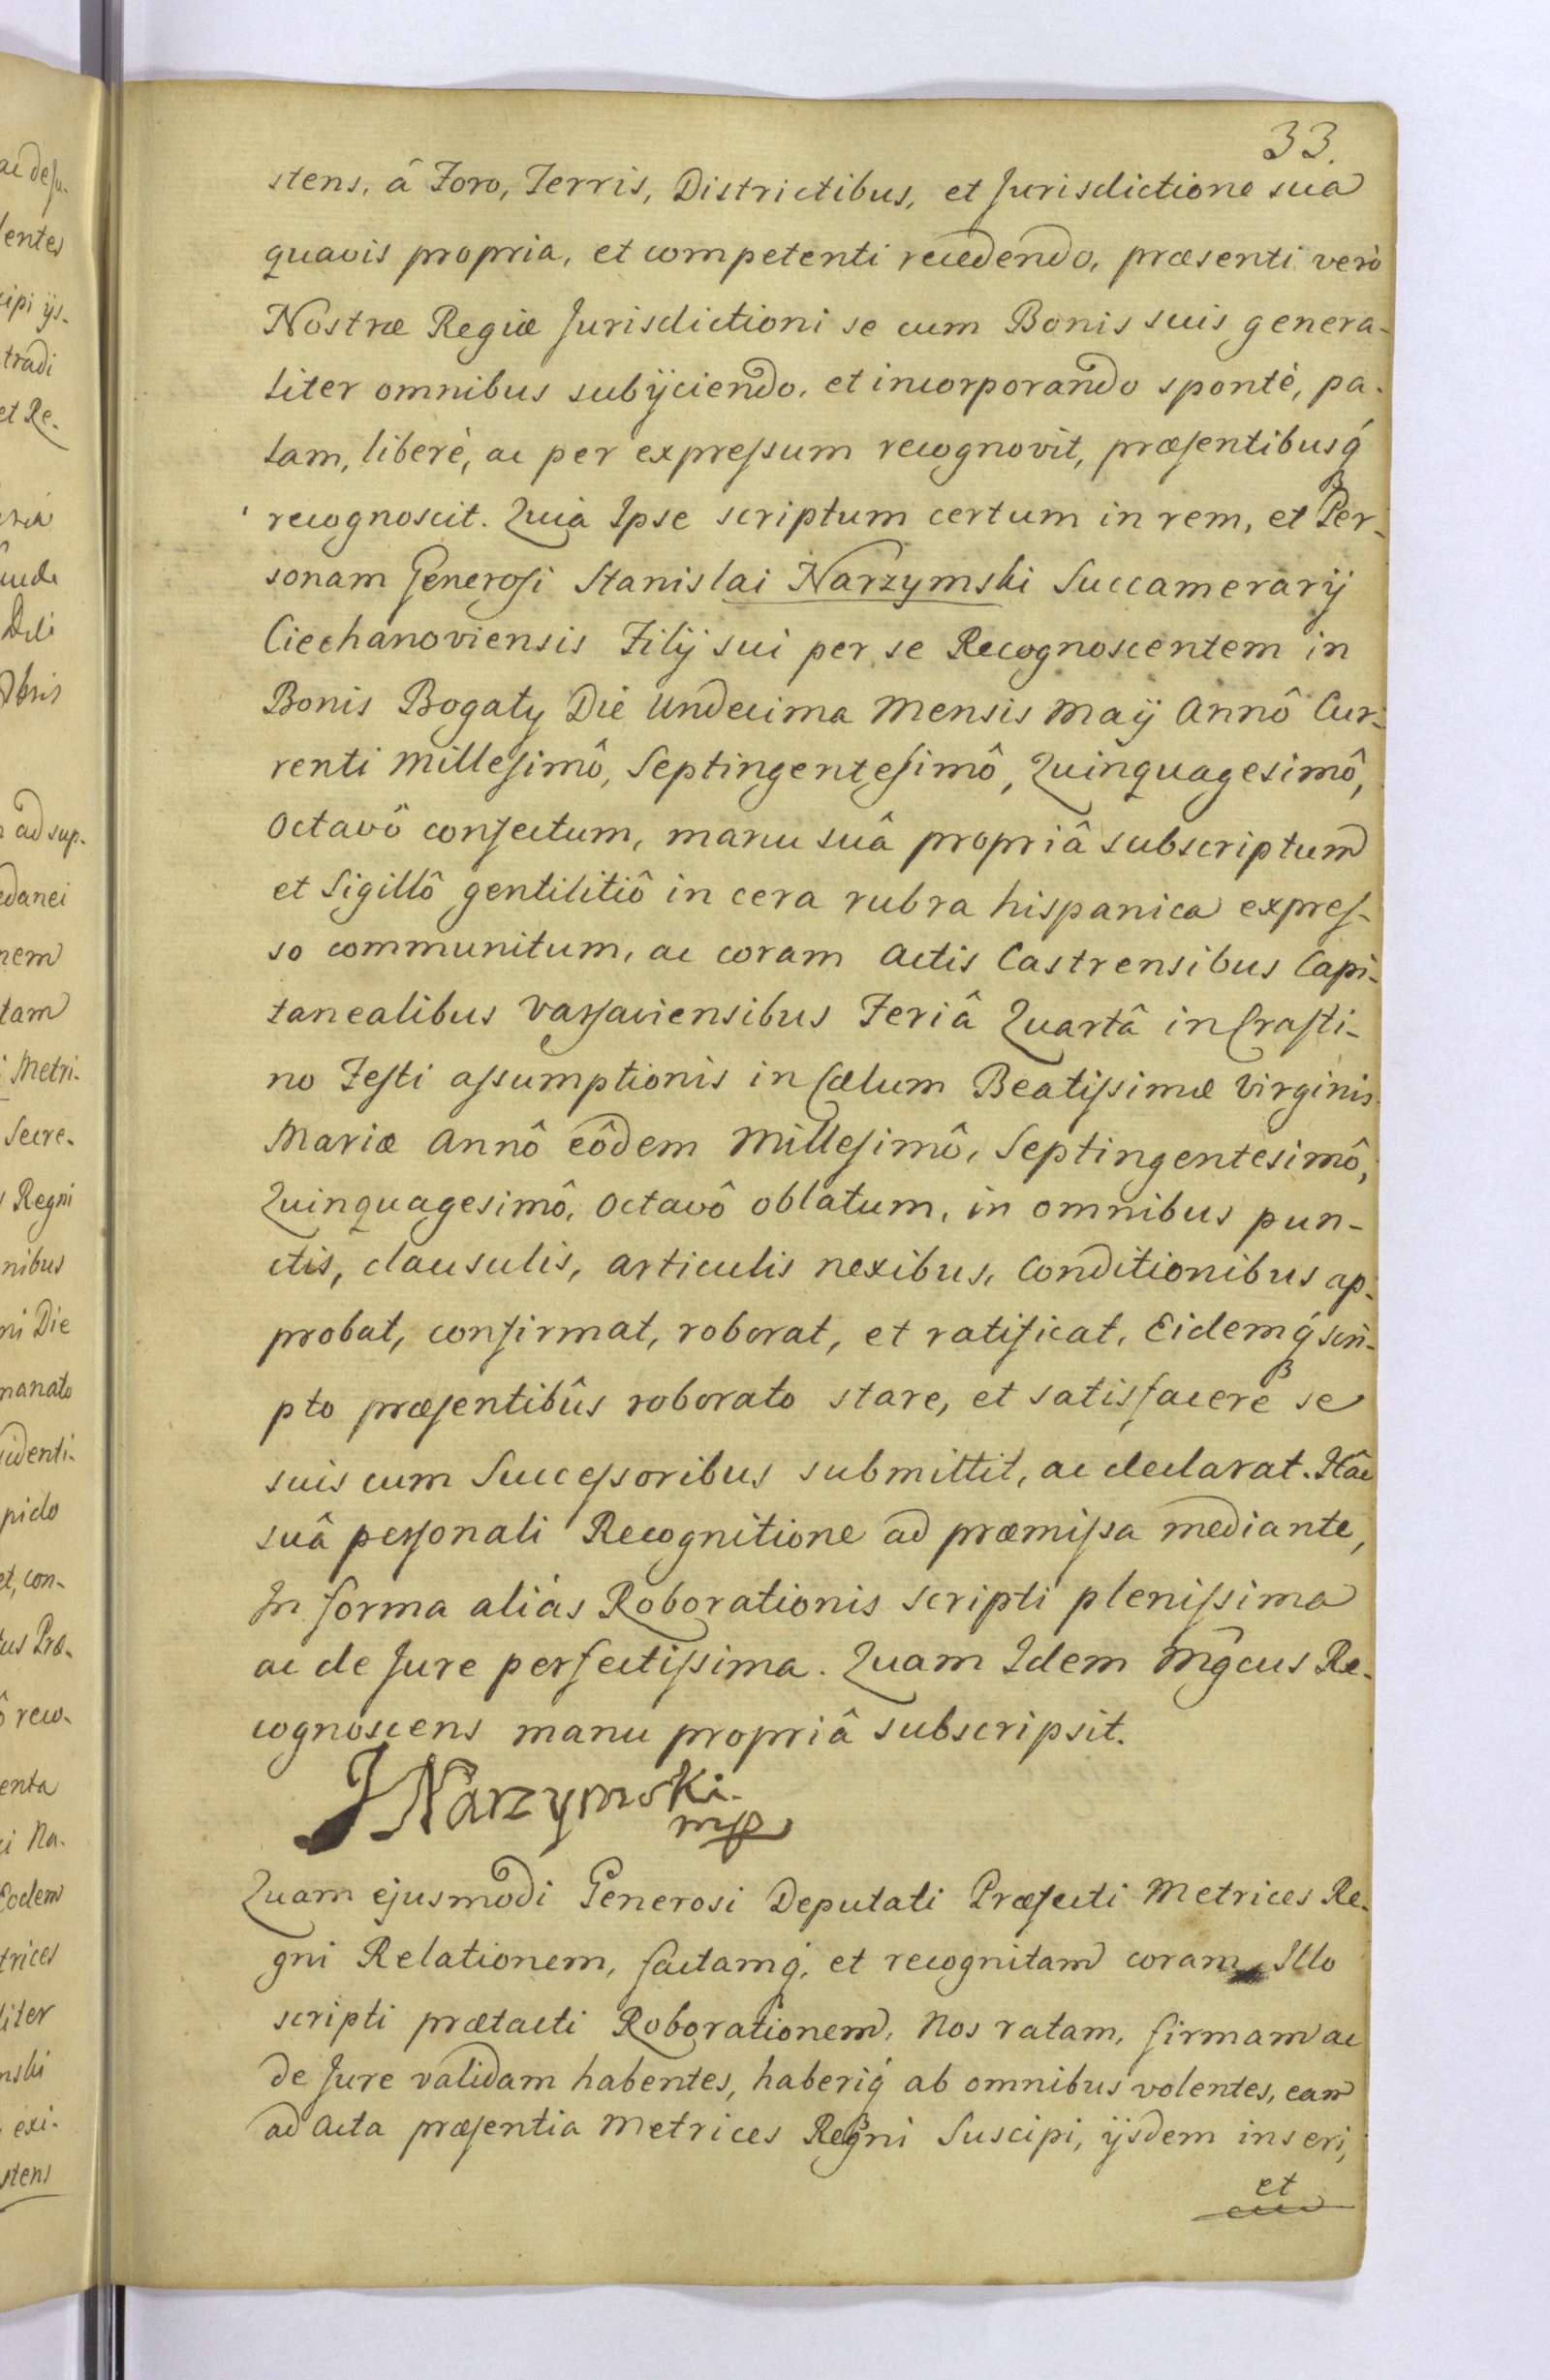 33.
stens, â Foro, Terris, Districtibus, et Jurisdictione sua
quavis propria, et competenti recedendo, præsenti verò
Nostræ Regiæ Jurisdictioni se cum Bonis suis genera-
liter omnibus subijciendo, et incorporando spontè, pa-
lam, liberè, ac per expressum recognovit, præsentibusq́
recognoscit. Quia Ipse scriptum certum in rem, et Per-
sonam Generosi Stanislai Narzymski Succamerarij
Ciechanoviensis Filij sui per se Recognoscentem in
Bonis Bogaty Die Undecima Mensis Maij Annô Cur-
renti Millesimô, Septingentesimô, Quinquagesimô,
Octavô confectum, manu suâ propriâ subscriptum
et Sigillô gentilitiô in cera rubra hispanica expres-
so communitum, ac coram Actis Castrensibus Capi-
tanealibus Varsaviensibus Feriâ Quartâ in Crasti-
no Festi assumptionis in Cælum Beatissimæ Virginis
Mariæ Annô eôdem Millesimô, Septingentesimô,
Quinquagesimô, Octavô oblatum, in omnibus pun-
ctis, clausulis, articulis nexibus, Conditionibus ap-
probat, confirmat, roborat, et ratificat, Eidemq́ scri-
pto præsentibûs roborato stare, et satisfacere se
suis cum Successoribus submittit, ac declarat. Hâc
suâ personali Recognitione ad præmissa mediante,
In forma aliàs Roborationis scripti plenissima
ac de Jure perfectissima. Quam Idem Mĝcus Re-
cognoscens manu propriâ subscripsit.
J Narzymski
mp
Quam ejusmodi Generosi Deputati Præfecti Metrices Re-
gni Relationem, factamq́, et recognitam coram Illo
scripti prætacti Roborationem, Nos ratam, firmam ac
de Jure validam habentes, haberiq́ ab omnibus volentes, eam
ad Acta præsentia Metrices Regni Suscipi, ijsdem inseri,
et